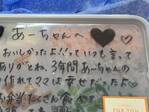 あーちゃんへ
おいしかったよ!!っていつも言って
ありがとね。3年間あーちゃんの
作れてママは幸せだったよ